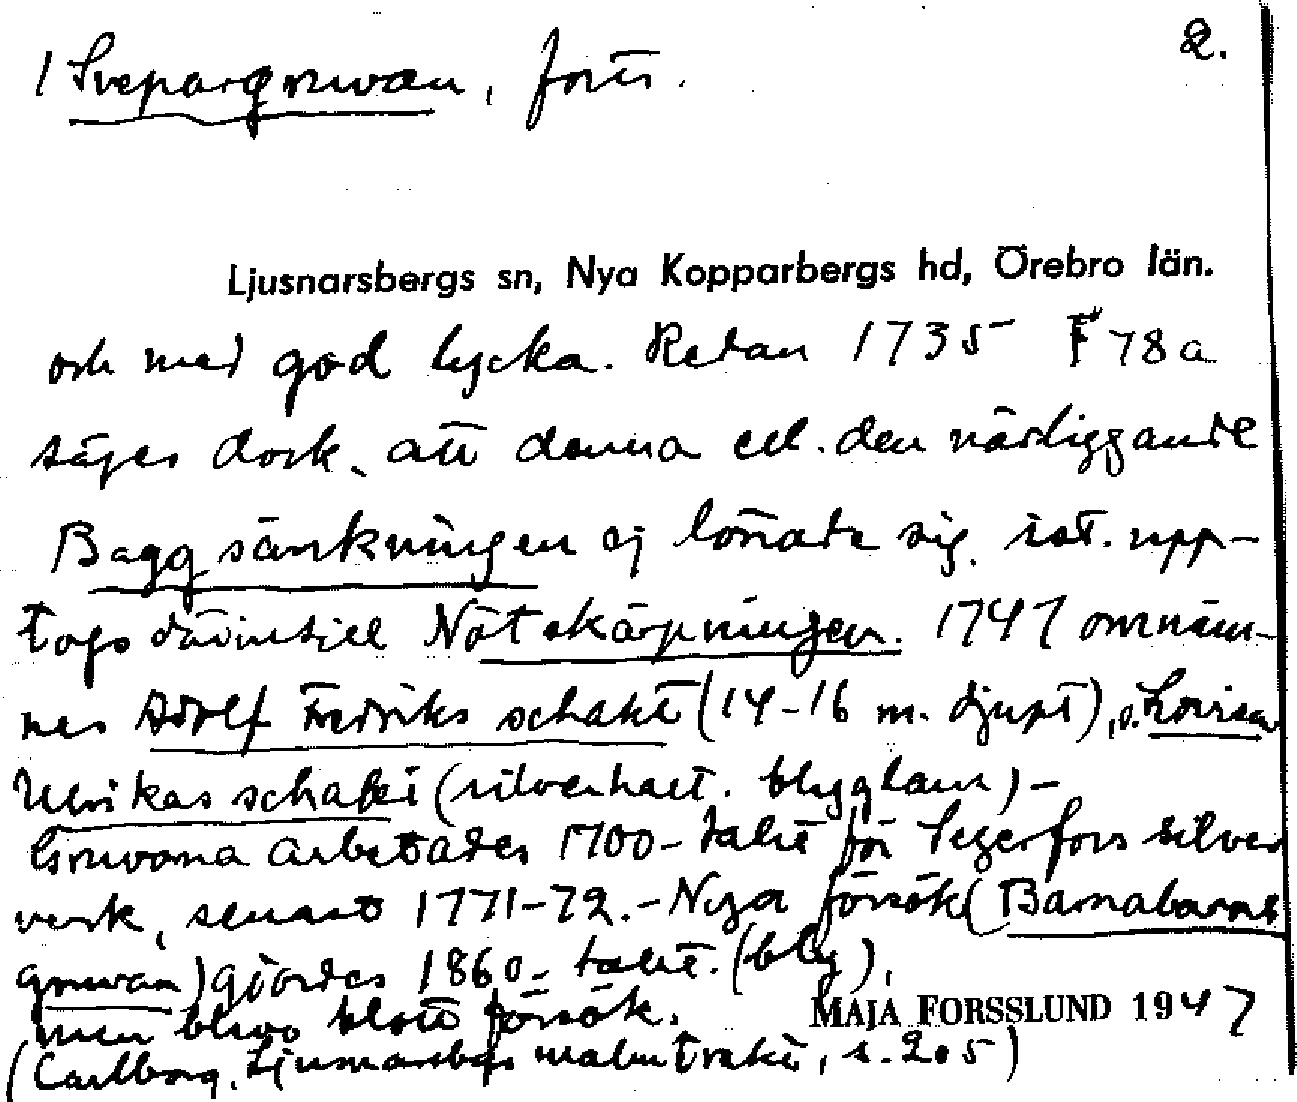 2.
1 Svepargruvan, forts.
Ljusnarsbergs sn, Nya Kopparbergs hd, Örebro län.
och med god lycka. Redan 1735 F 78 a
säges dock, att denna ell. den närliggande
Baggsänkningen ej lönade sig. ist. upp-
togs därintill Nötskärpningen. 1747 omnäm-
nes Adolf Fredriks schakt (14-16 m. djupt), o. Lovisa
Ulrikas schakt (silverhalt. blyglans) -
Gruvorna arbetades 1700-talet för Segerfors silver
verk, senast 1771-72. - Nya försök (Barnabarns
gruvan) gjordes 1860-talet. (bly),
men blevo blott försök.
MAJA FORSSLUND 1947
(Carlborg, Ljusnarsbergs malmtrakt, s. 205)